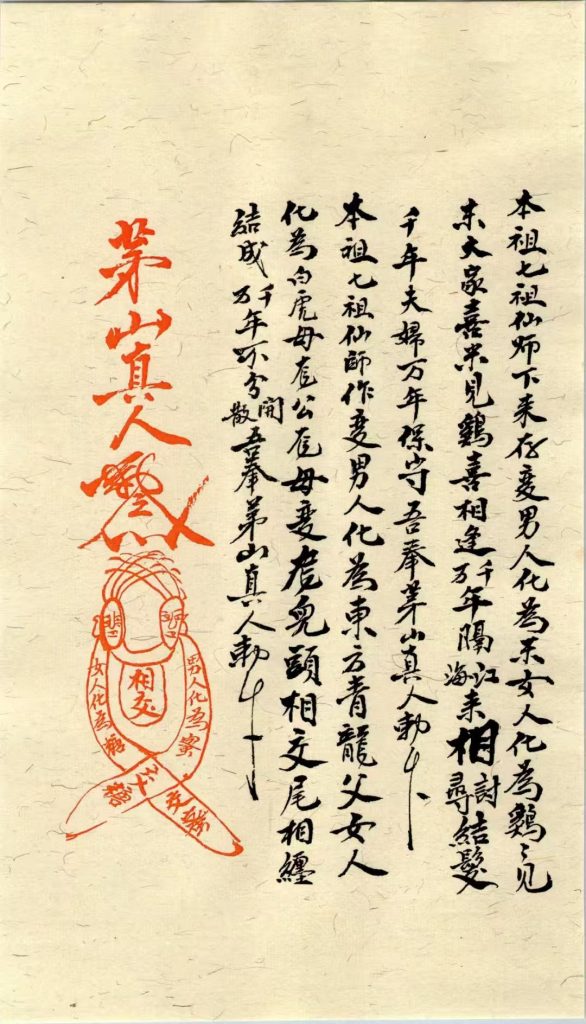 本祖七祖仙师下来存变男人化為米女人化為鷄〻见
米大家喜米见鷄喜相逢千万年隔江海来相討尋結髮
千年夫婦万年保守吾奉茅山真人勅令
本祖七祖仙師作变男人化為東方青龍父女人
化為白虎母虎公虎母变虎兒頭相交尾相纏
結成千万年不分開散吾奉茅山真人勅令
茅山真人
相交
男人化為
女人化為